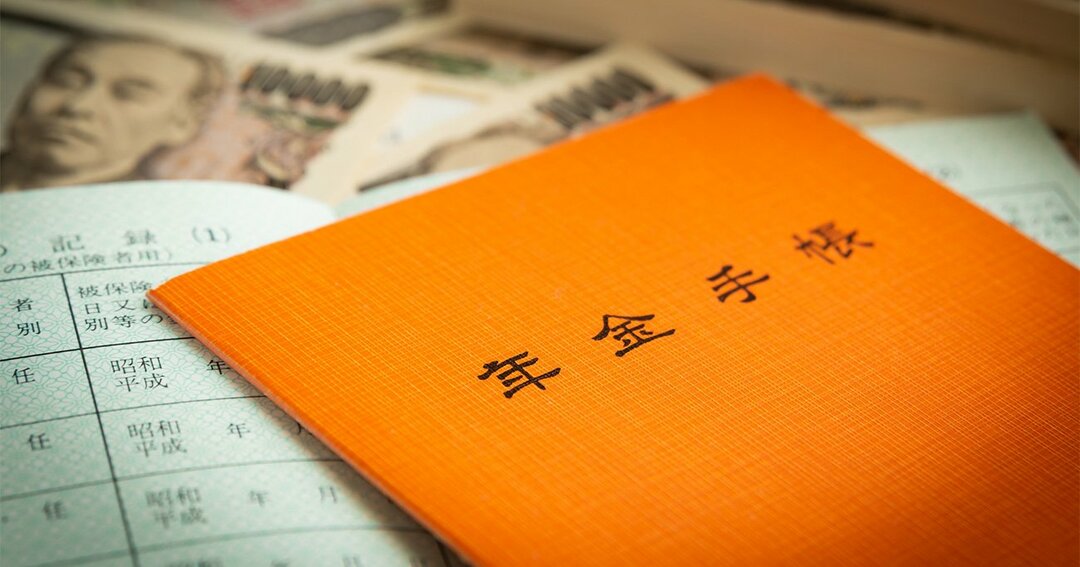 10000
10000
年金手帳
記録 (1)
の被保険者用)
者
別
被保険
日又は
別等の
任
昭和 年
平成
任
昭和 年
平成
任
昭和 年 月
平成